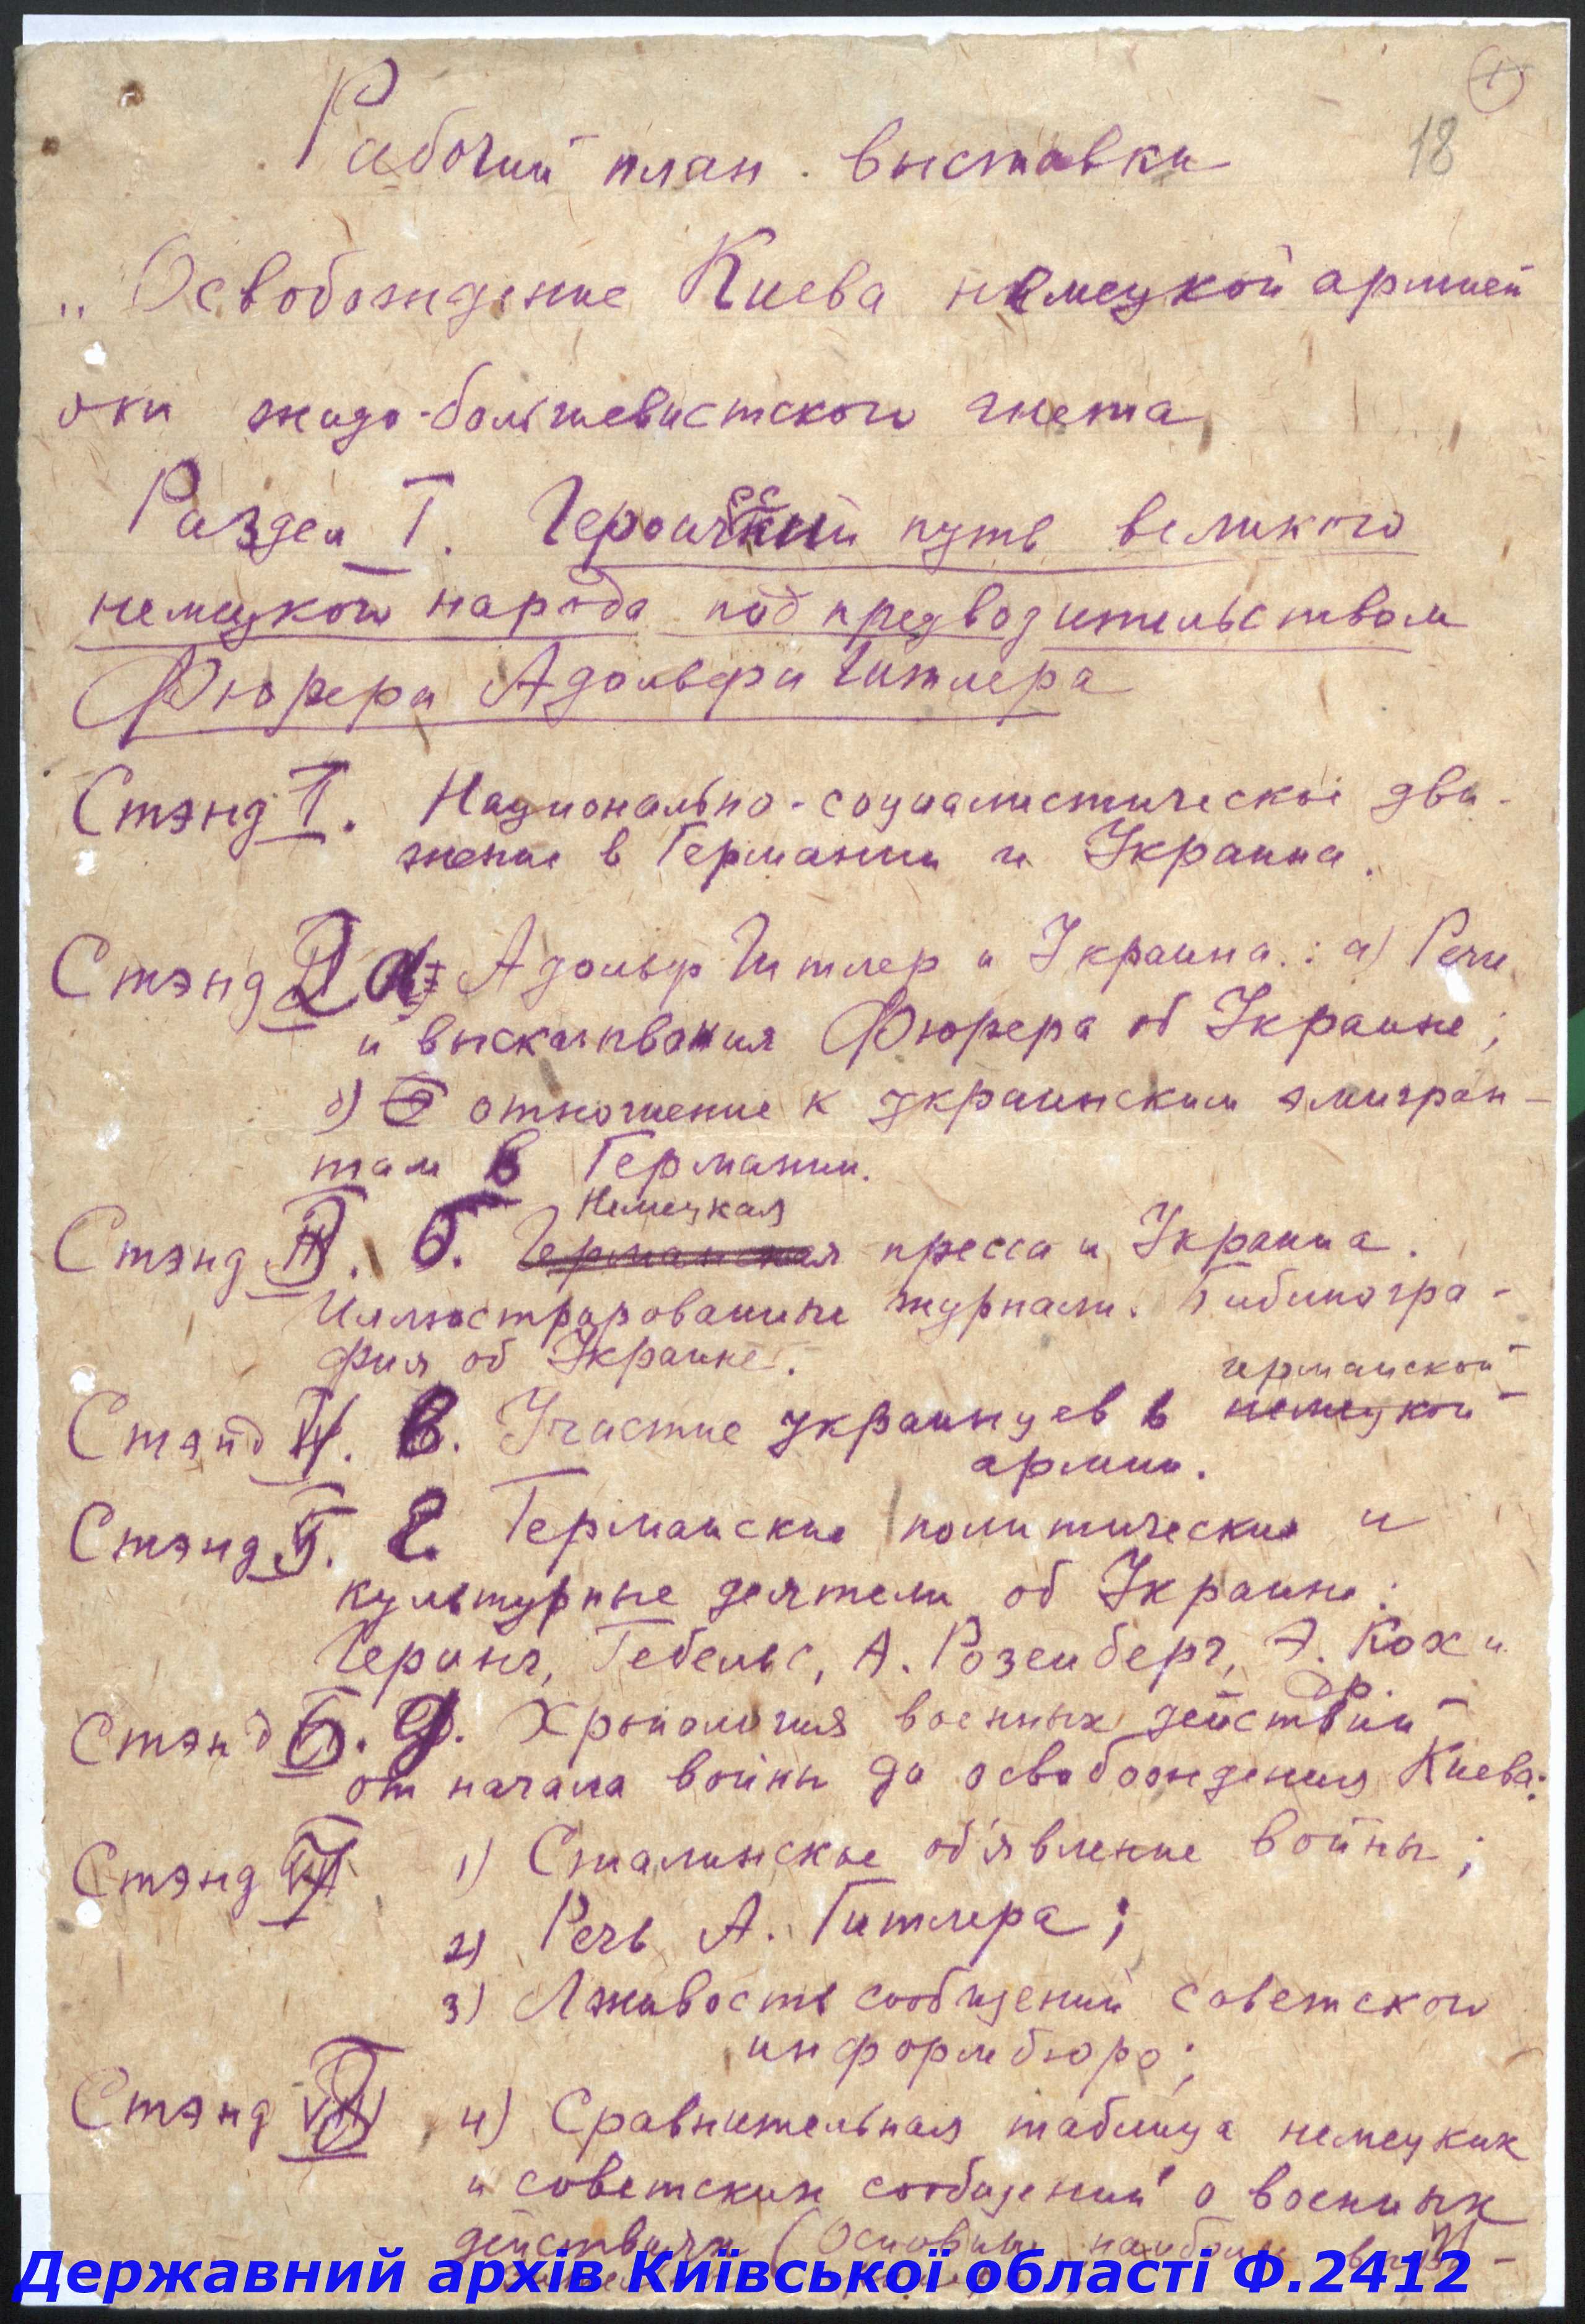 1
18
Рабочий план выставки
„Освобождение Киева немецкой армией
от жидо-большевистского гнета
Раздел I. Героический путь великого
немецкого народа под предводительством
Фюрера Адольфа Гитлера
Стэнд I. Национально-социалистическое дви-
жение в Германии и Украина.
Стэнд II а) Адольф Гитлер и Украина.: а) Речи
и выскаывания Фюрера об Украине;
б) отношение к украинским эмигран-
там в Германии.
Немецкая
Стэнд б. Германская пресса и Украина.
Иллюстрированные журналы. Библиогра-
фия об Украине.
германской
Стэнд в. Участие украинцев в немецкой
армии.
Стэнд г. Германские политические и
культурные деятели об Украине:
Геринг, Гебельс, А. Розенберг, Э. Кох и
др.
Стэнд д. Хронология военных действий
от начала войны до освобождения Киева:
Стэнд 1) Сталинское об'явление войны;
2) Речь А. Гитлера;
3) Лживость сообщений советского
информбюро;
Стэнд 4) Сравнительная таблица немецких
и советских сообщений о военных
действиях (Основные наиболее
Державний архів Київської області Ф.2412